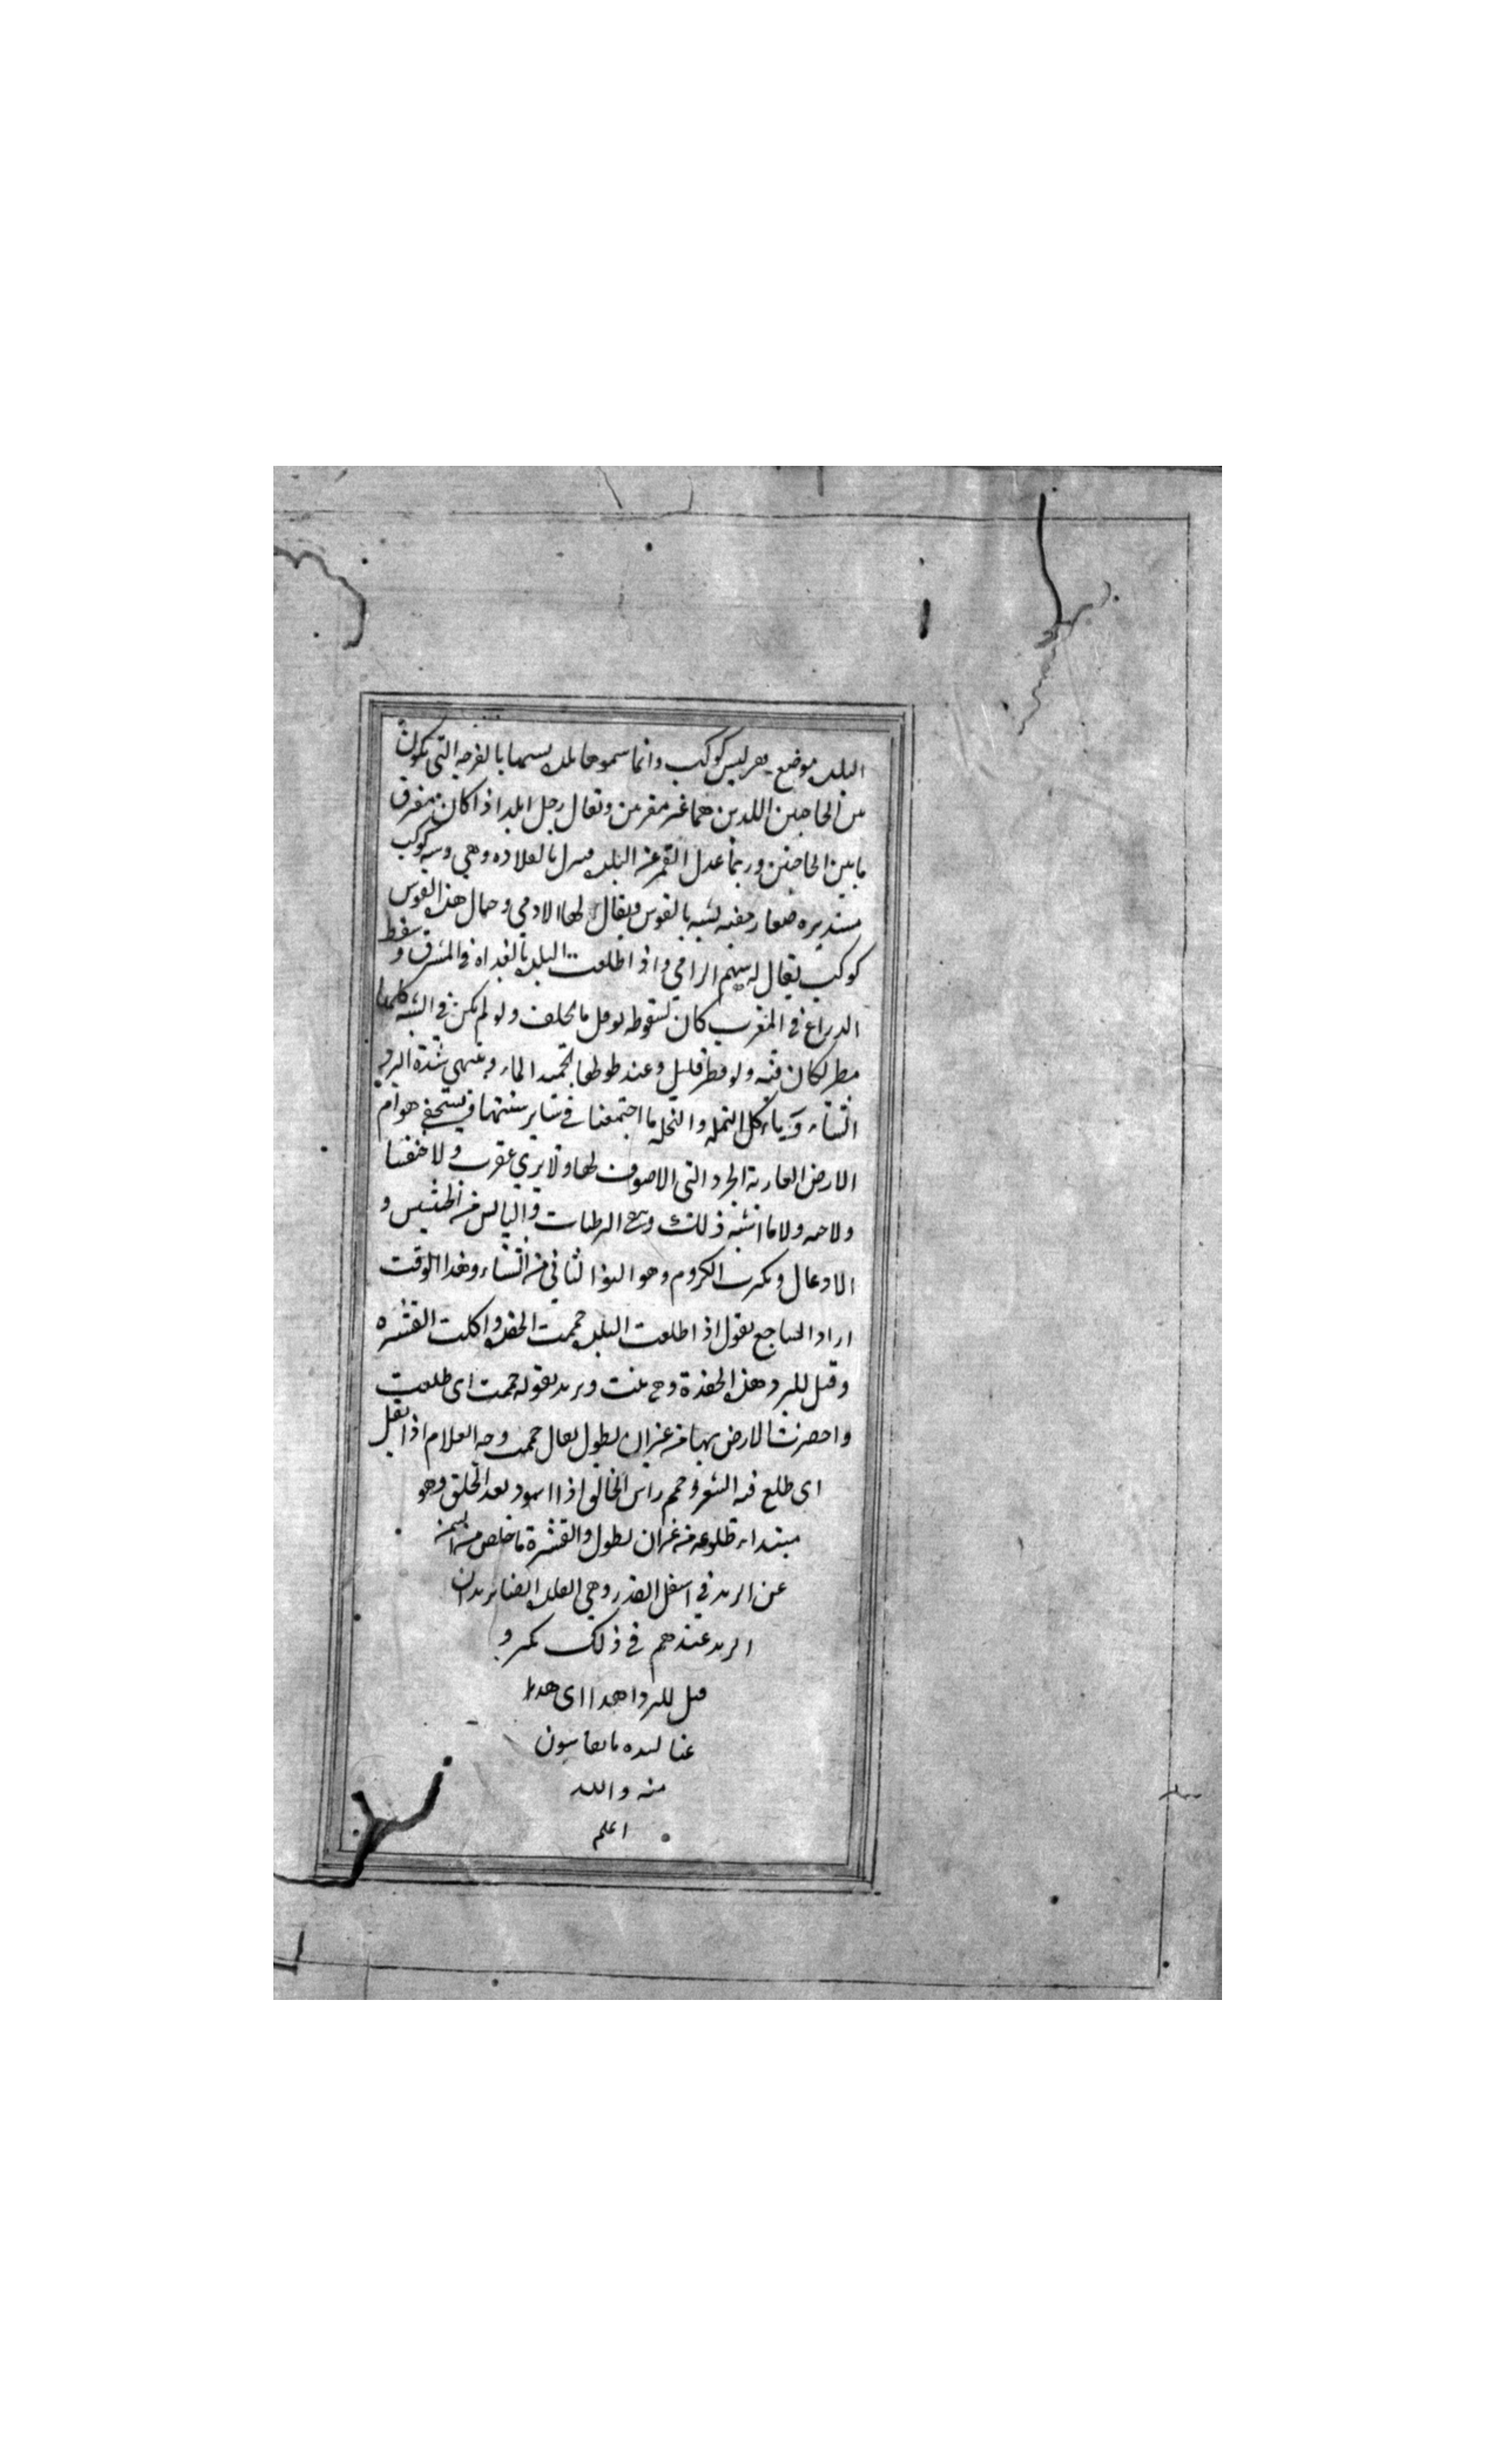 البلده موضع يعر ليس كوكب وانما سموها بلده يسمها بالفرجه التي يكون
بين الحاجبين اللدين هما غير مقرنين ويقال رجل ابلد اذا كان مفرق
ما بين الحاجبين وربما عدل القمر عن البلده فنزل بالقلاده وهي وسه كوكب
مستديره صغار خفيه تشبه بالقوس ويقال لها الادمي وحيال هذه القوس
كوكب يقال له سهم الرامي واذا طلعت البلده بالغداه في المشرق وسقط
الدراع في المغرب كان لسقوطه نو قل ما يخلف ولو لم يكن في السنه كلها
مطر لكان فيه ولو قطر قليل وعند طلوعها تجميد الماء وينتهي شدة البرد
الشتاء وياكل النمله والنحله ما اجتمعنا في ساير سنتها ويستخفي هوام
الارض العارية الجرد التي لاصوف لها ولا يري عقرب ولا خنفسا
ولا حيه ولا ما اشبه ذلك الرطبات واليابس من الحشيش و
الادغال ويكرب الكروم وهو النو الثاني من الشتاء وهذا الوقت
اراد الساجع يقول اذا طلعت البلده حممت الجعده واكلت القشره
وقيل للبرد هذه الجعدة نبت ويريد بقوله حممت اى طلعت
واخضرت الارض بها من غير ان يطول يقال حمم وجه الغلام اذا بقل
اى طلع فيه الشعر وحمم راس الحالق اذا اسود بعد الحلق وهو
مبتداء طلوعه من غير ان يطول والقشرة ما خلص من السمن
عن الزبد في اسفل القدر وهي القلده ايضا يريد ان
الزبد عندهم في ذلك يكبر و
قيل للبرد اهدا اى هدا
عنا لشده ما يقاسون
منه والله
اعلم